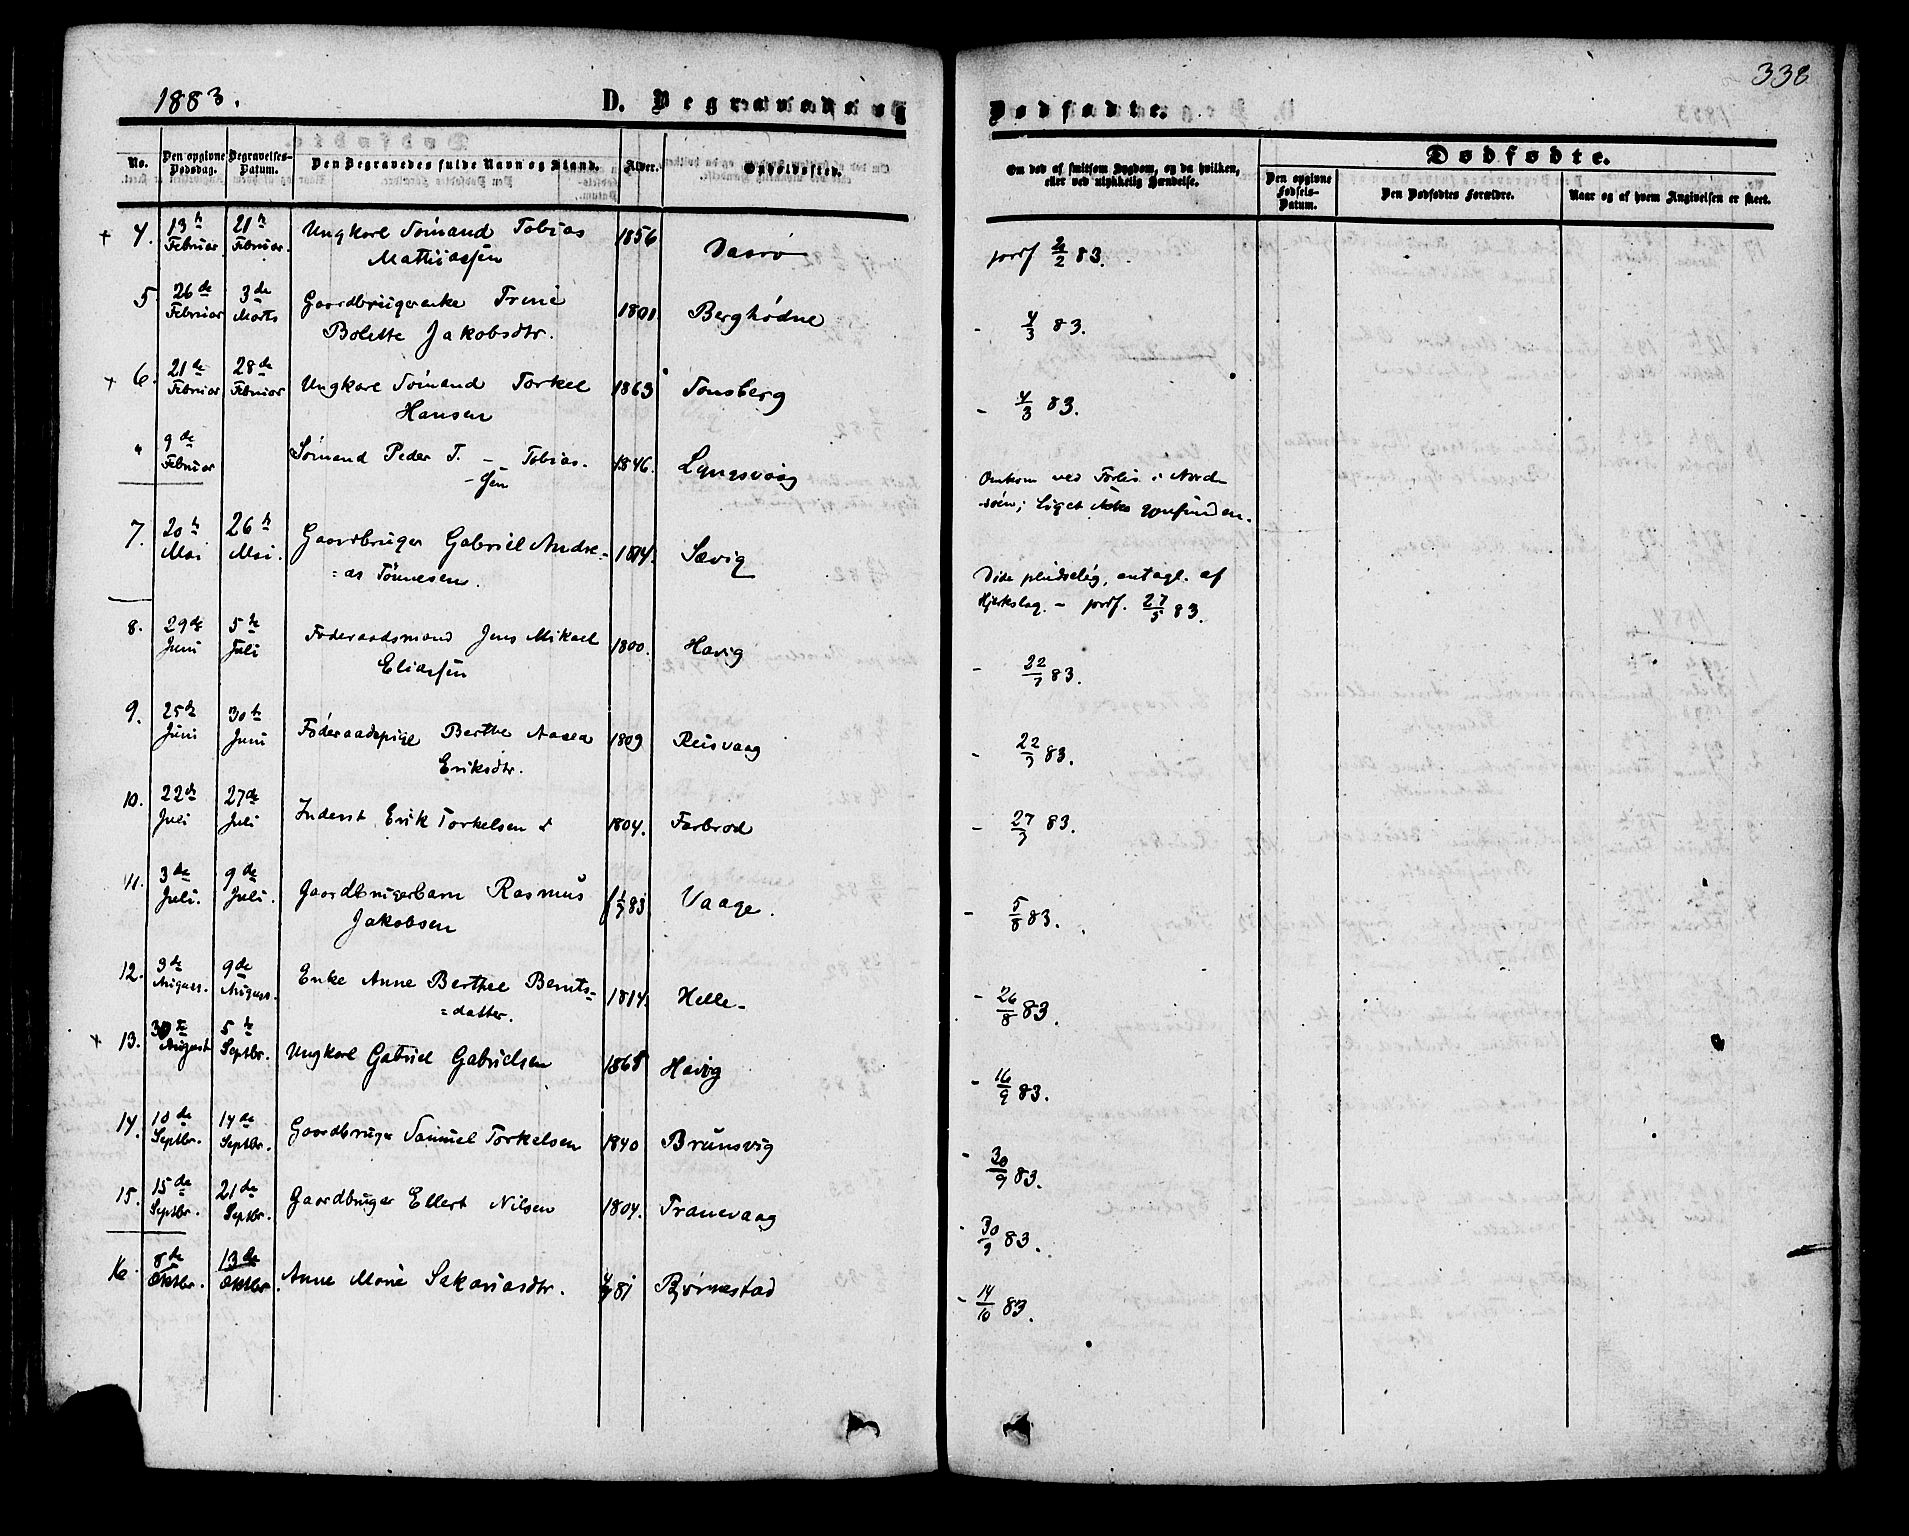 338
1883.
D. Begravede og Dødfødte.
No.
Den opgivne Dødsdag.
Begravelses-Datum.
Den Begravedes fulde Navn og Stand.
Alder.
Opholdssted.
Om død af smitsom Sygdom, og da hvilken, eller ved ulykkelig Hændelse.
Dødfødte.
Den opgivne Fødsels-Datum.
Den Dødfødtes Forældre.
Naar og af hvem Angivelsen er skeet.
+ 4. 13de Februar 21de Februar. Ungkarl Sømand Tobias 1856
Mathiassen
jordf 2/2 83.
5. 26de Februar 3de Marts Gaardbrugerenke Trine 1801 Berghødne
Bolette Jakobsdtr.
- 4/3 83.
+ 6. 21de Februar 28de Februar Ungkarl Sømand Torkel 1863 Tonsberg
Hansen
- 4/3 83.
" 9de Februar Sømand Peder T. - Tobias- 1846. Lyngsvaag
-sen
Omkom ved Forlis i Nord-
søen; Liget ikke gjenfunden.
7. 20de Mai 26de Mai. Gaardbruger Gabriel Andre- 1814. Sævig
=as Tønnesen.
Døde pludselig, antagl. af
Hjerteslag. - jordf. 27/5 83.
8. 29de Juni 5te Juli Føderaadsmand Jens Mikael 1800. Havig
Eliassen
- 22/7 83.
9. 25de Juni 30te Juni Føderaadspige Berthe Aasea 1809 Reisvaag
Eriksdtr.
- 22/7 83.
10. 22de Juli 27de Juli Inderst Erik Torkelsen 1804. Farbrod
- 27/7 83.
11. 3de Juli. 9de Juli. Gaardbrugerbarn Rasmus 1/7 83 Vaage.
Jakobsen
- 5/8 83.
12. 3de August. 9de August. Enke Anne Berthe Bernts- 1814. Helle
=datter.
- 26/8 83.
+ 13. 30te August 5te Septbr. Ungkarl Gabriel Gabrielsen 1868 Havig
- 16/9 83.
14. 10de Septbr. 14de Septbr. Gaardbruger Samuel Torkelsen 1840 Brunsvig
- 30/9 83.
15. 15de Septbr. 21de Septbr. Gaardbruger Ellert Nilsen 1804. Tranevaag
- 30/9 83.
16. 8de Oktbr. 13de Oktbr. Anne Marie Sakariasdtr. 81 Bjørnestad
- 14/10 83.